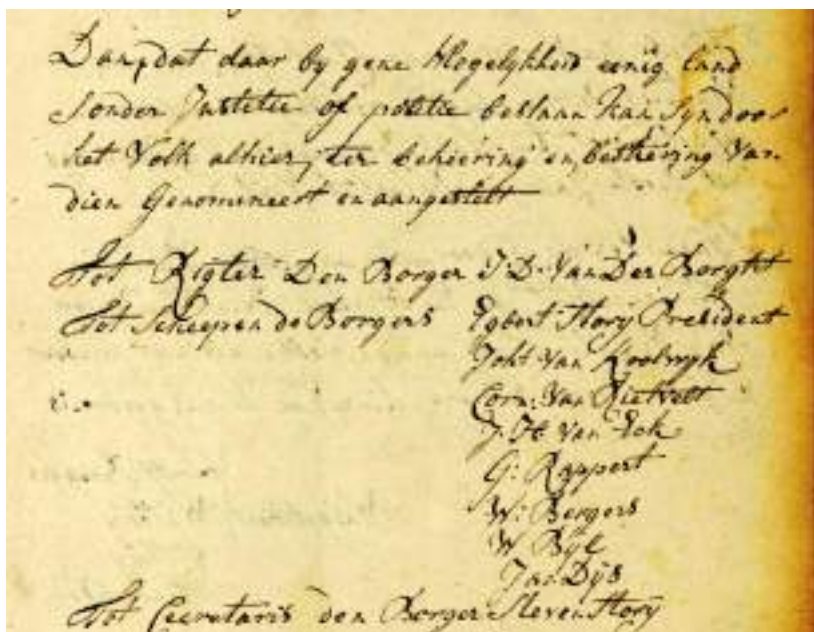 Dan, dat daar by gene Mogelykheid eenig land
sonder Justitie of politie bestaan kan syn door
het Volk alhier, ter beheering en bestiering van
dien Genomineert en aangestelt
Tot Rigter Den Borger J. D. Van Der Borght
Tot Scheepen de Borgers Egbert Story President
Joht Van Koolwyk
Corn: Van Rietvelt
J. H. Van Eck
G: Rappert
W: Bergers
W Byl
Jan Dijs
Tot Secretaris den Borger Steven Story